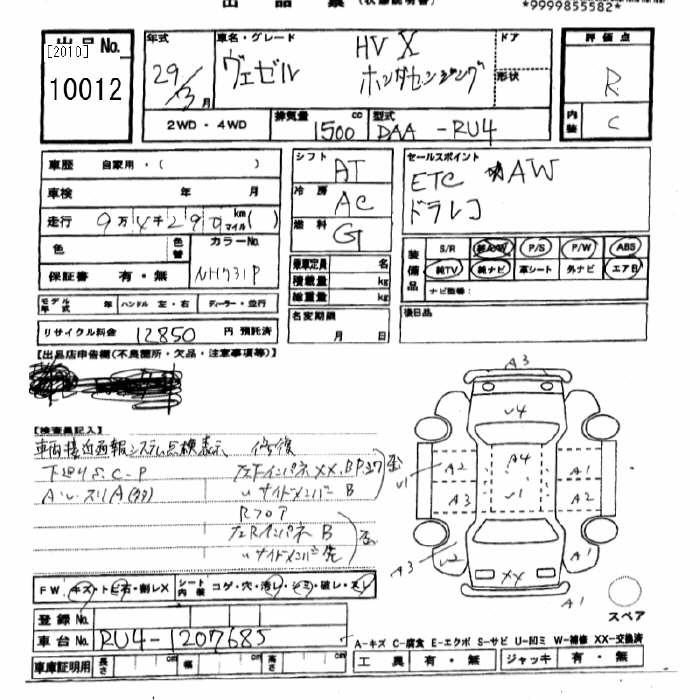 出品票(状態説明書)
*9999855582*
[2010]
出品No.
10012
年式 29/3月
車名・グレード HV X
ヴェゼル ホンダセンシング
ドア
形状
評価点 R
内装 C
2WD・4WD
排気量 1500 cc
型式 DAA-RU4
車歴 自家用・( )
車検 年 月
走行 9万4千290 km マイル( )
色 色替 カラーNo.
保証書 有・無 NH731P
モデル年式 年 ハンドル 左・右 ディーラー・並行
リサイクル料金 12850 円 預託済
シフト AT
冷房 AC
燃料 G
乗車定員 名
積載量 kg
総重量 kg
名変期限 月 日
セールスポイント
ETC AW
ドラレコ
装備品 S/R 純AW P/S P/W ABS
純TV 純ナビ 革シート 外ナビ エアB
ナビ画像:
後日品
【出品店申告欄(不良箇所・欠品・注意事項等)】
【検査員記入】
車両接近通報システム点検表示 修復
下廻りS.C-P 左FインパネXX,BP
〃サイドメンバーB
Rフロア
左RインパネB
〃サイドメンバー先
A3
U4
A4
U1
A2
A3
U1
A1
A2
A3
U2
XX
A1
A1
FW. キズ・トビ石・削レX
シート内装 コゲ・穴・汚レ・シミ・破レ・スレ
スペア
登録No.
車台No. RU4-1207685
車庫証明用 長さ cm 幅 cm 高さ cm
A-キズ C-腐食 E-エクボ S-サビ U-凹ミ W-補修 XX-交換済
工具 有・無 ジャッキ 有・無